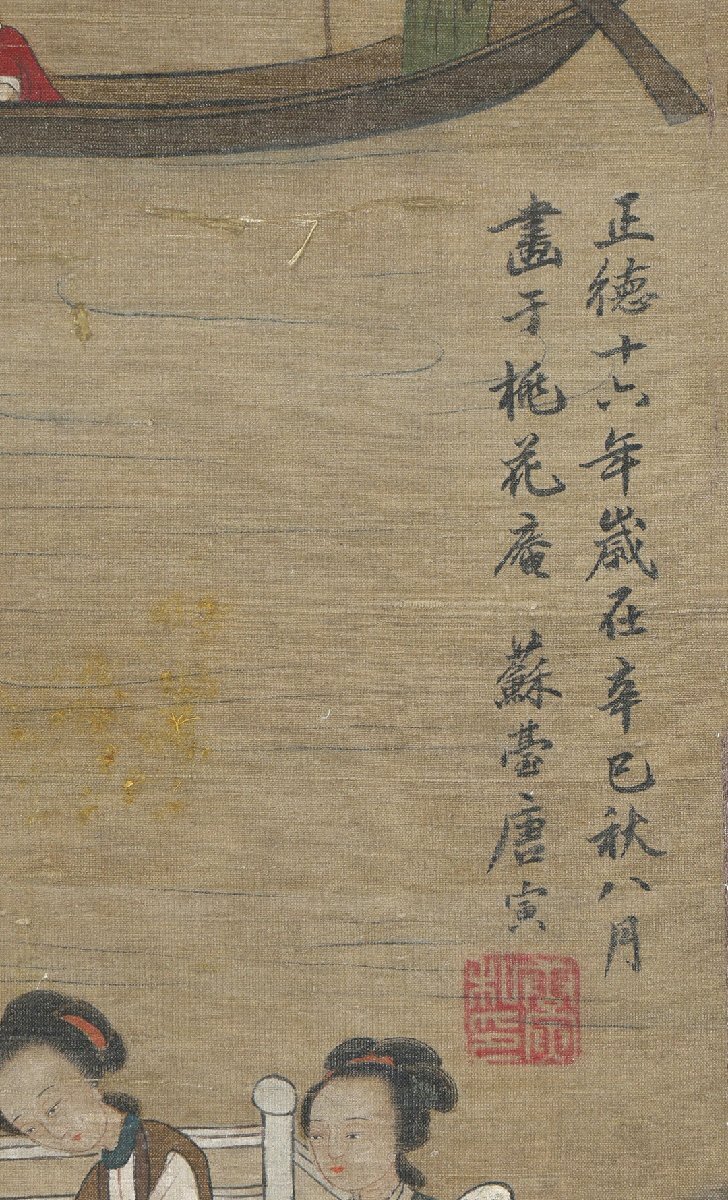 正德十六年歲在辛巳秋八月
畫于桃花庵 蘇臺唐寅